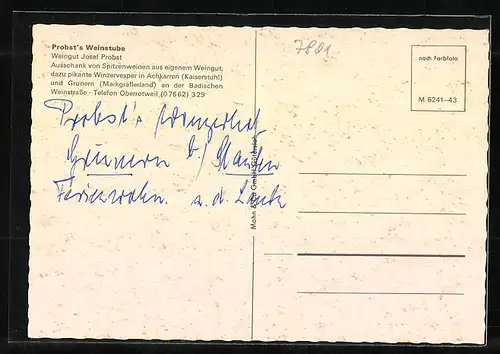 Probst's Weinstube
Weingut Josef Probst
Ausschank von Spitzenweinen aus eigenem Weingut,
dazu pikante Winzervesper in Achkarren (Kaiserstuhl)
und Grunern (Markgräflerland) an der Badischen
Weinstraße · Telefon Oberrotweil (07662) 329
7801
nach Farbfoto
M 5241-43
Probst's Winzerhof
Grunern b/ Staufen
Ferienwohn. a. d.
Mohn & Co GmbH Gütersloh